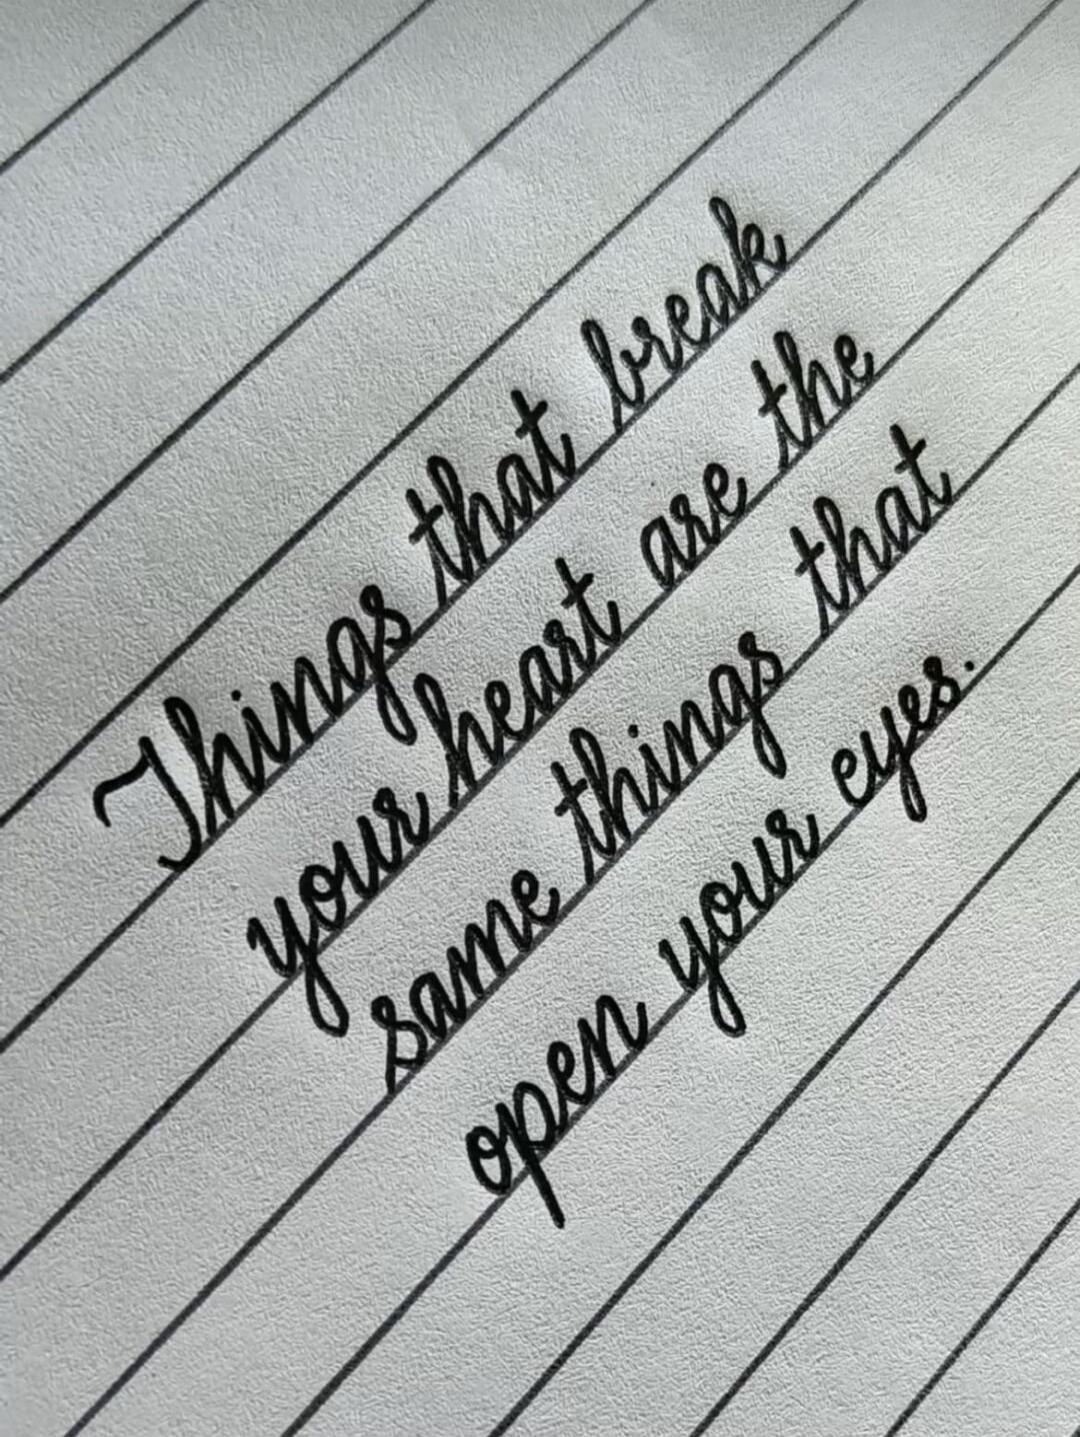 Things that break
your heart are the
same things that
open your eyes.